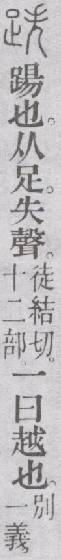 跌 踼也。从足。失聲。徒結切。十二部。一曰越也。別一義。